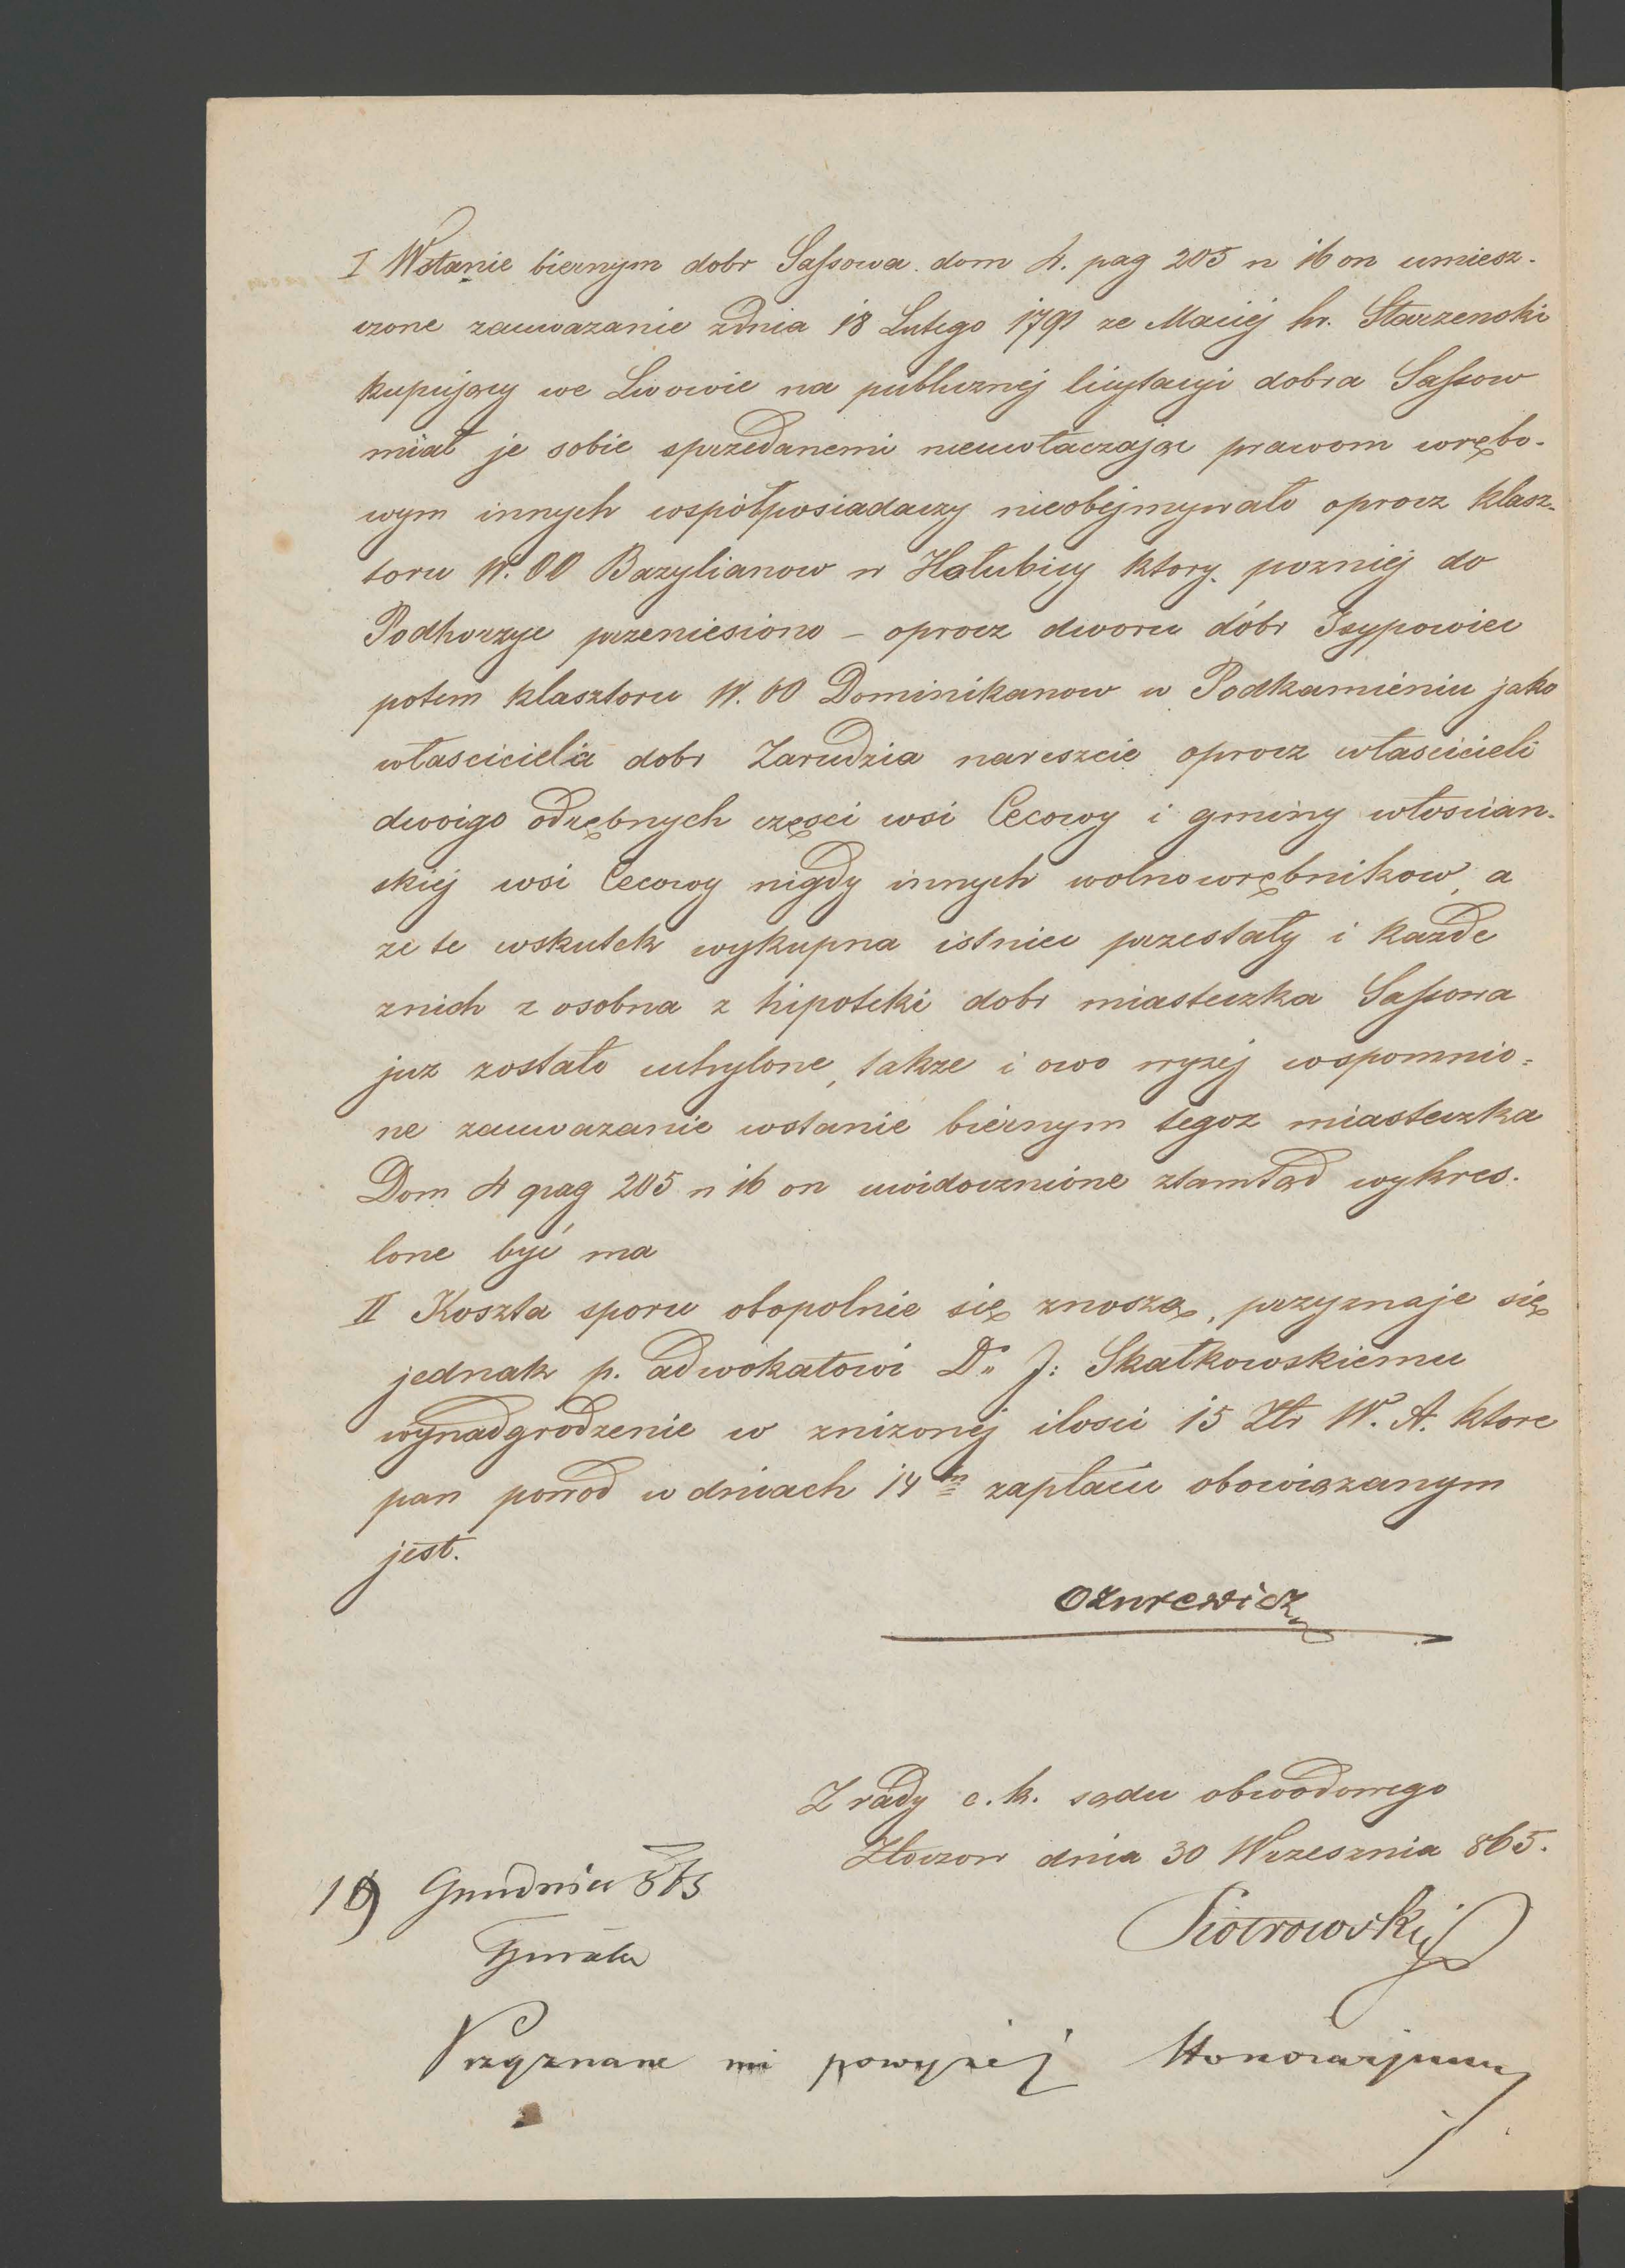 I Wstanie biernym dobr Saſsowa dom 4. pag 205 n 16 on umiesz-
czone zauwazanie zdnia 18 Lutego 1791 ze Maciej hr. Starzenski
kupujący we Lwowie na publicznej licytacyi dobra Saſsow
miał je sobie sprzedanemi nieuwłaczając prawom wrębo-
wym innych wspołposiadaczy nieobejmywało oprocz klasz-
toru W. OO Bazylianow w Hołubicy ktory pozniej do
Podhorzyc przeniesiono – oprocz dworu dóbr Isypowiec
potem klasztoru W. OO Dominikanow w Podkamieniu jako
własciciela dobr Zarudzia nareszcie oprocz własicieli
dwoigo odrębnych częsci wsi Cecowy i gminy włoscian-
skiej wsi Cecowy nigdy innych wolnowrębnikow, a
ze te wskutek wykupna istniec przestały i kazde
znich z osobna z hipoteki dobr miasteczka Saſsowa
juz zostało uchylone, takze i owo wyzej wspomnio=
ne zauwazanie wstanie biernym tegoz miasteczka
Dom 4 pag 205 n 16 on uwidocznione ztamtąd wykres-
lone być ma
II Koszta sporu obopolnie się znoszą, przyznaje się
jednak p. adwokatowi Dr J: Skałkowskiemu
wynadgrodzenie w znizonej ilosci 15 Złr W. A. ktore
pan powod w dniach 14tu zapłacic obowiązanym
jest.
Ozurewicz
Z rady c. k. sądu obwodowego
Złoczow dnia 30 Wrzesznia 865.
Grudnia 865
Piotrowski
Przyznane mi powyżej Honorarjum